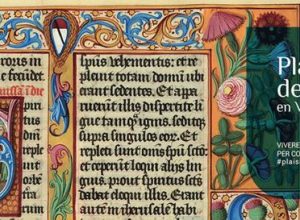 spūs vehementis: et re
pleuit totam domū ubi
erant sedentes. Et appa
ruerūt illis dispertite lī
gue tamq̄ ignis. seditq;
supra singulos eor. Et
repleti sunt om̄s spū scō:
et ceperūt loqui alijs lin
guis. prout spiritus scūs
dabat eloqui illis. Erant
autē in iherusalē habi
Pla
de
en V
VIVERE
PER CO
#plais